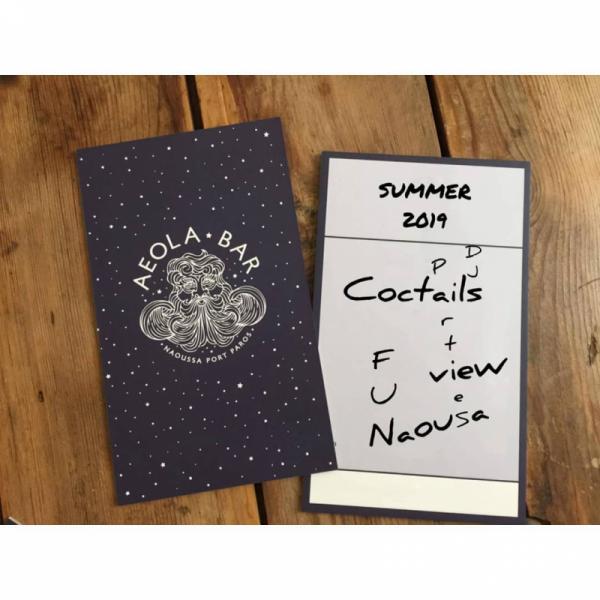 AEOLA ★ BAR
· NAOUSSA PORT PAROS ·
SUMMER
2019
D
P J
Coctails
r
t
F
view
U e
Naousa